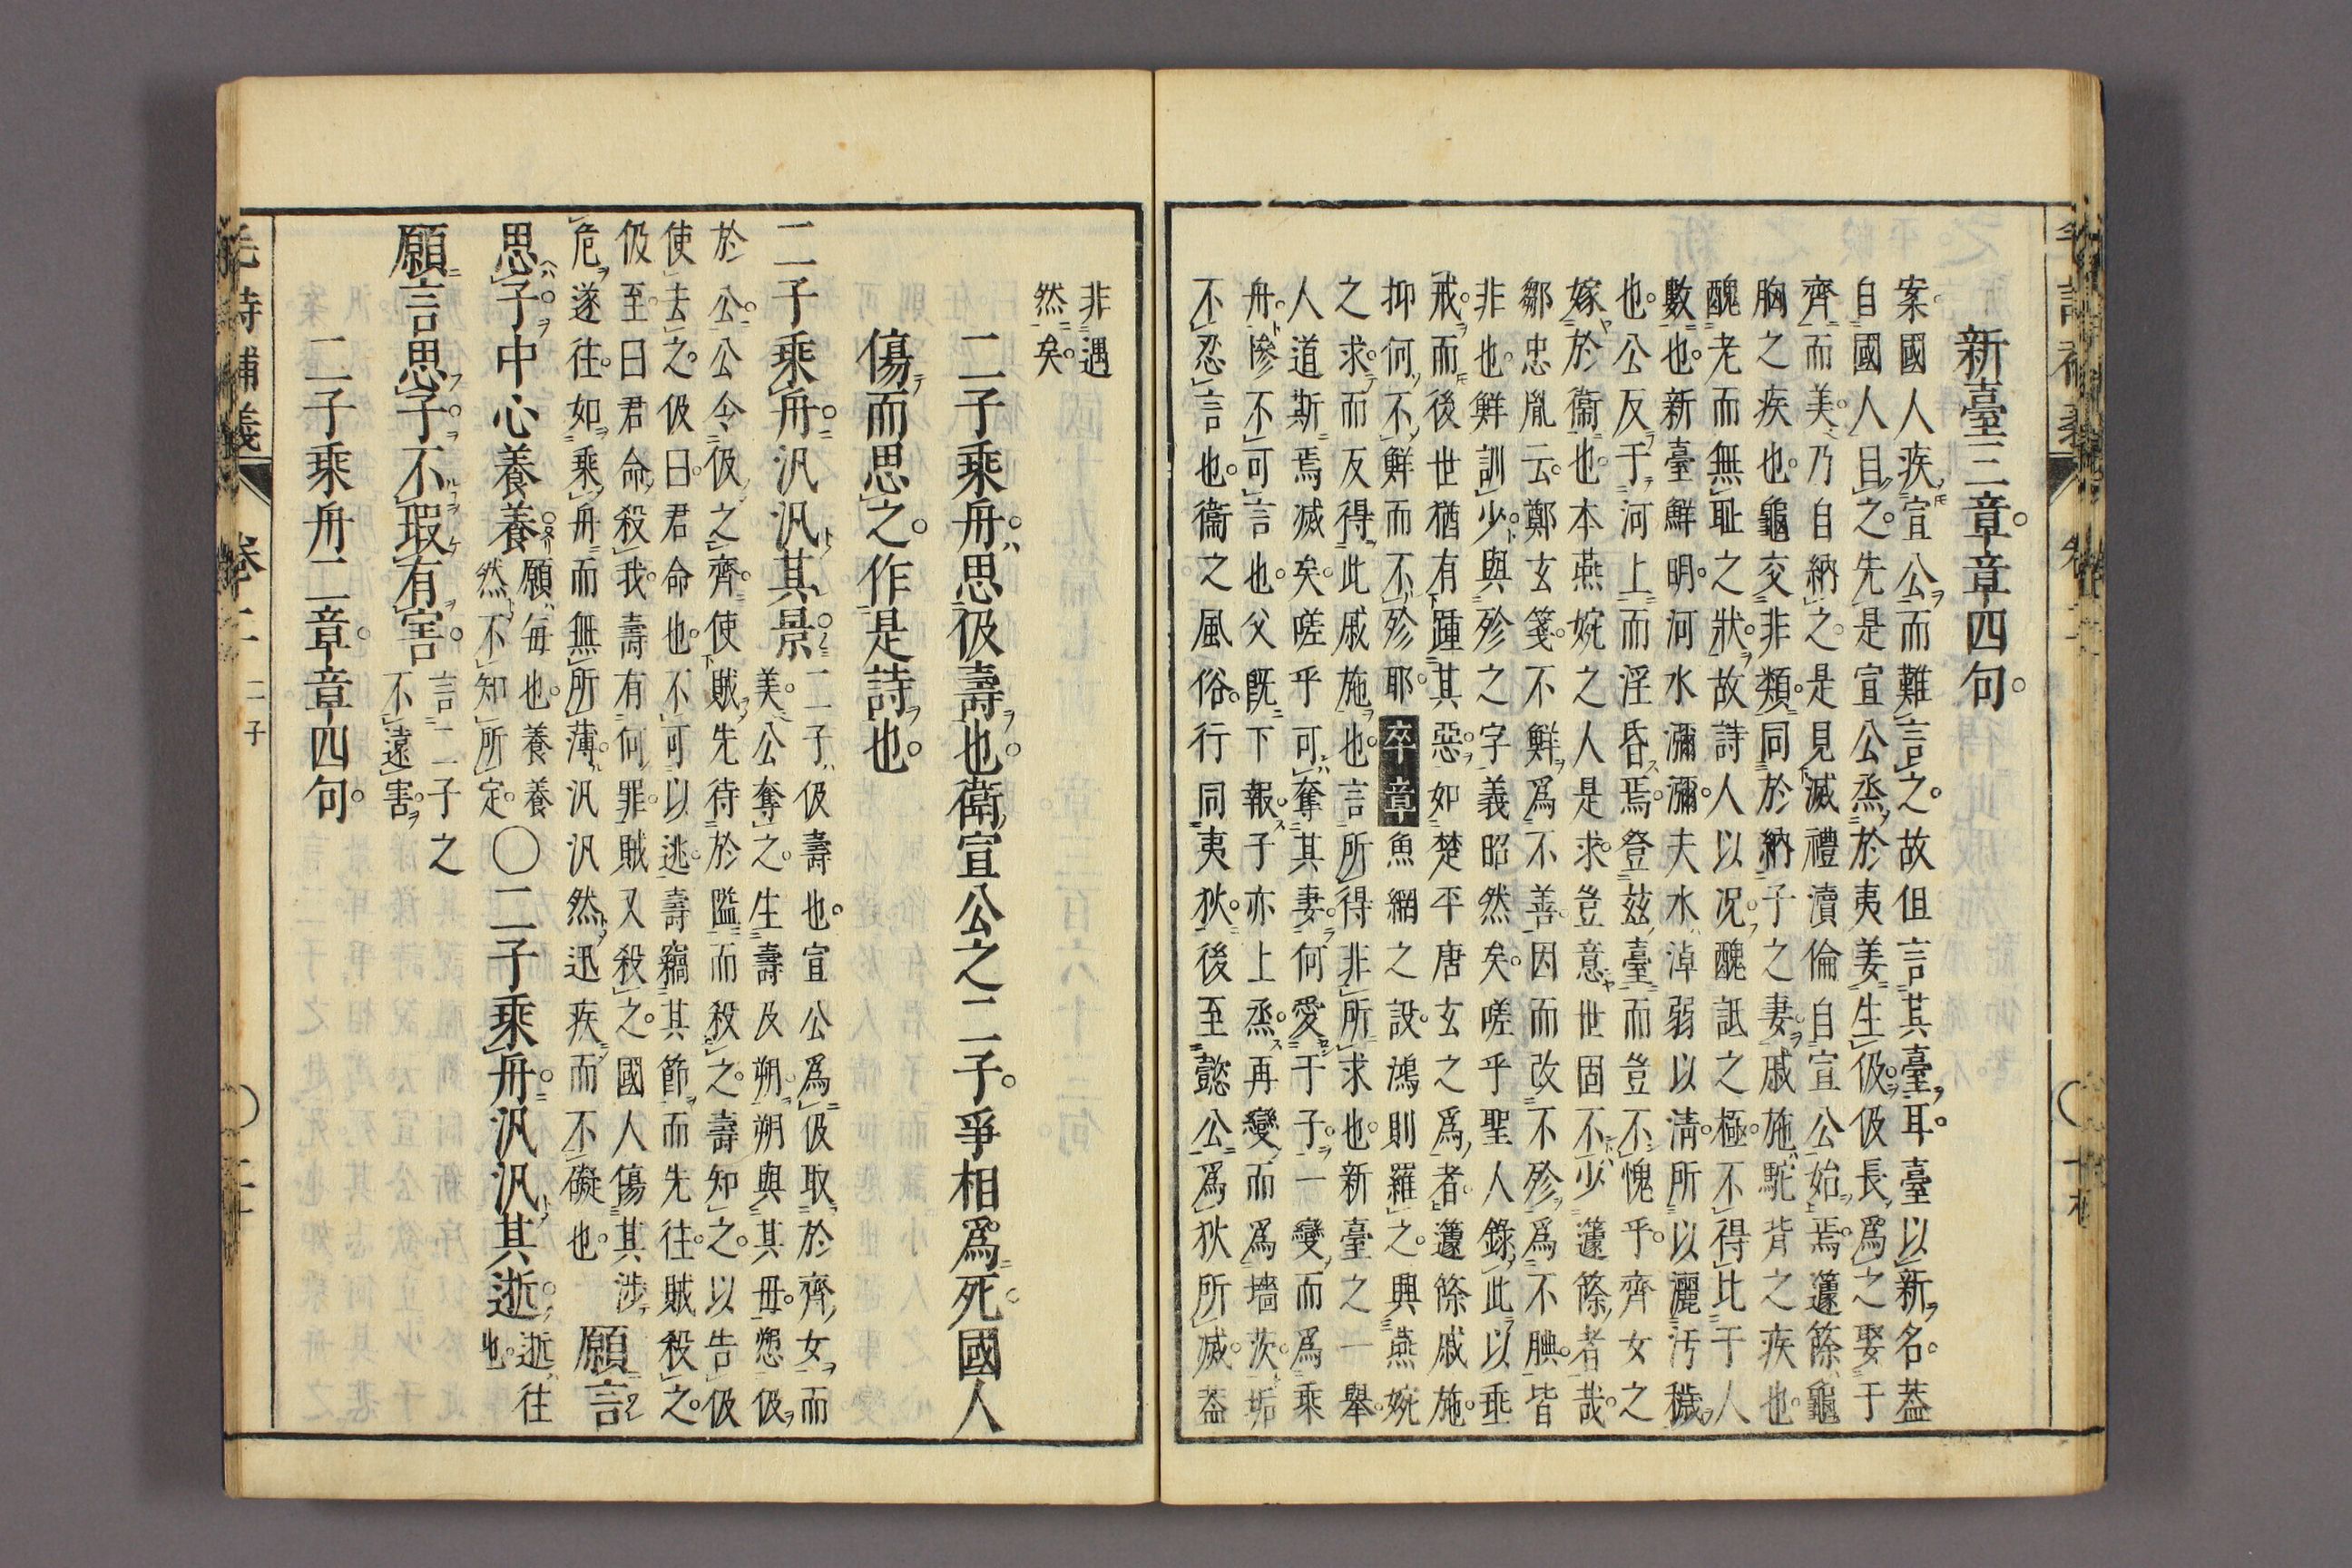 新臺三章章四句
案國人疾宣公而難言之故但言其臺耳臺以新名蓋
自國人目之先是宣公烝於夷姜生伋伋長爲之娶于
齊而美乃自納之是見滅禮瀆倫自宣公始焉籧篨龜
胸之疾也龜交非類同於納子之妻戚施駝背之疾也
醜老而無耻之狀故詩人以况醜詆之極不得比于人
數也新臺鮮明河水瀰瀰夫水淖弱以淸所以灑汚穢
也公反于河上而淫昏焉登茲臺而豈不愧乎齊女之
嫁於衞也本燕婉之人是求豈意世固不少籧篨者哉
鄒忠胤云鄭玄箋不鮮爲不善因而改不殄爲不腆皆
非也鮮訓少與殄之字義昭然矣嗟乎聖人錄此以垂
戒而後世猶有踵其惡如楚平唐玄之爲者籧篨戚施
抑何不鮮而不殄耶卒章魚網之設鴻則羅之興燕婉
之求而反得此戚施也言所得非所求也新臺之一舉
人道斯焉滅矣嗟乎可奪其妻何愛于子一變而爲乘
舟慘不可言也父旣下報子亦上烝再變而爲墻茨垢
不忍言也衞之風俗行同夷狄後至懿公爲狄所滅蓋
非遇
然矣
二子乘舟思伋壽也衞宣公之二子爭相爲死國人
傷而思之作是詩也
二子乘舟汎汎其景二子伋壽也宣公爲伋取於齊女而
美公奪之生壽及朔朔與其母愬伋
於公公令伋之齊使賊先待於隘而殺之壽知之以告伋
使去之伋曰君命也不可以逃壽竊其節而先往賊殺之
伋至曰君命殺我壽有何罪賊又殺之國人傷其涉
危遂往如乘舟而無所薄汎汎然迅疾而不礙也願言
思子中心養養願每也養養
然不知所定〇二子乘舟汎汎其逝逝往
也
願言思子不瑕有害言二子之
不遠害
二子乘舟二章章四句
毛詩補義 卷二 二子